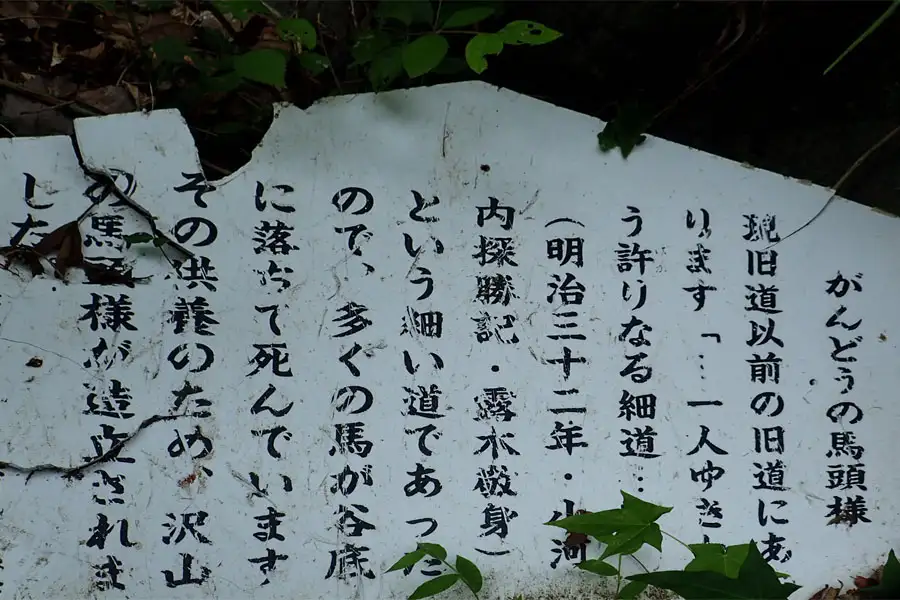 がんどうの馬頭様
現旧道以前の旧道にあ
ります「…一人ゆき
う許りなる細道…
（明治三十二年・小河
内探勝記・露木敬身）
という細い道であった
ので、多くの馬が谷底
に落ちて死んでいます
その供養のため、沢山
の馬頭様が造立されま
した